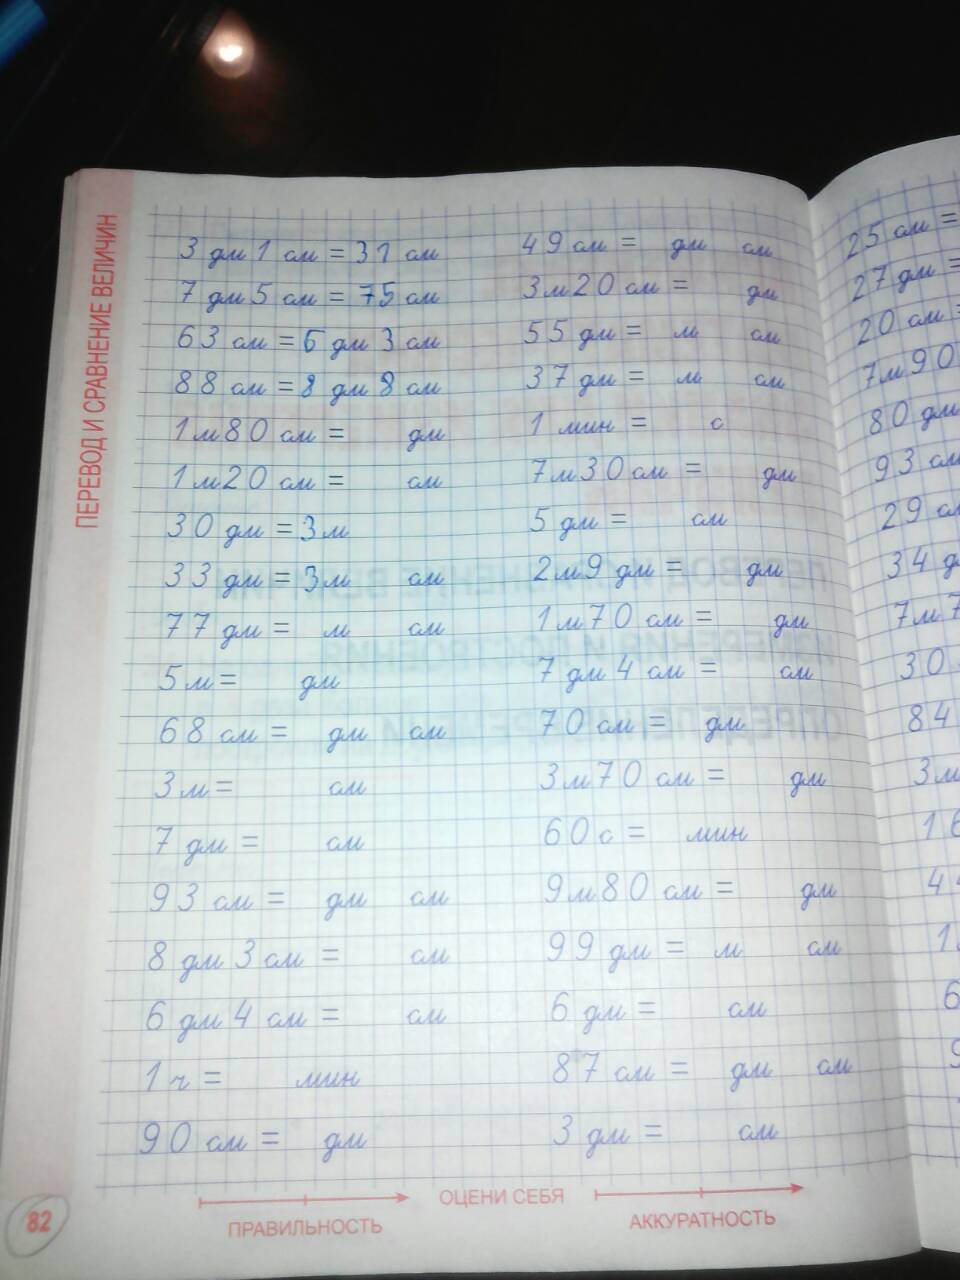 ПЕРЕВОД И СРАВНЕНИЕ ВЕЛИЧИН
3 дм 1 см = 31 см
7 дм 5 см = 75 см
63 см = 6 дм 3 см
88 см = 8 дм 8 см
1 м 80 см = дм
1 м 20 см = см
30 дм = 3 м
33 дм = 3 м см
77 дм = м см
5 м = дм
68 см = дм см
3 м = см
7 дм = см
93 см = дм см
8 дм 3 см = см
6 дм 4 см = см
1 ч = мин
90 см = дм
49 см = дм см
3 м 20 см = дм
55 дм = м см
37 дм = м см
1 мин = с
7 м 30 см = дм
5 дм = см
2 м 9 дм = дм
1 м 70 см = дм
7 дм 4 см = см
70 см = дм
3 м 70 см = дм
60 с = мин
9 м 80 см = дм
99 дм = м см
6 дм = см
87 см = дм см
3 дм = см
25 см =
27 дм =
20 см =
7 м 90
80 дм
93 см
29 см
34 д
7 м 7
30
84
3 м
ОЦЕНИ СЕБЯ
ПРАВИЛЬНОСТЬ
АККУРАТНОСТЬ
82